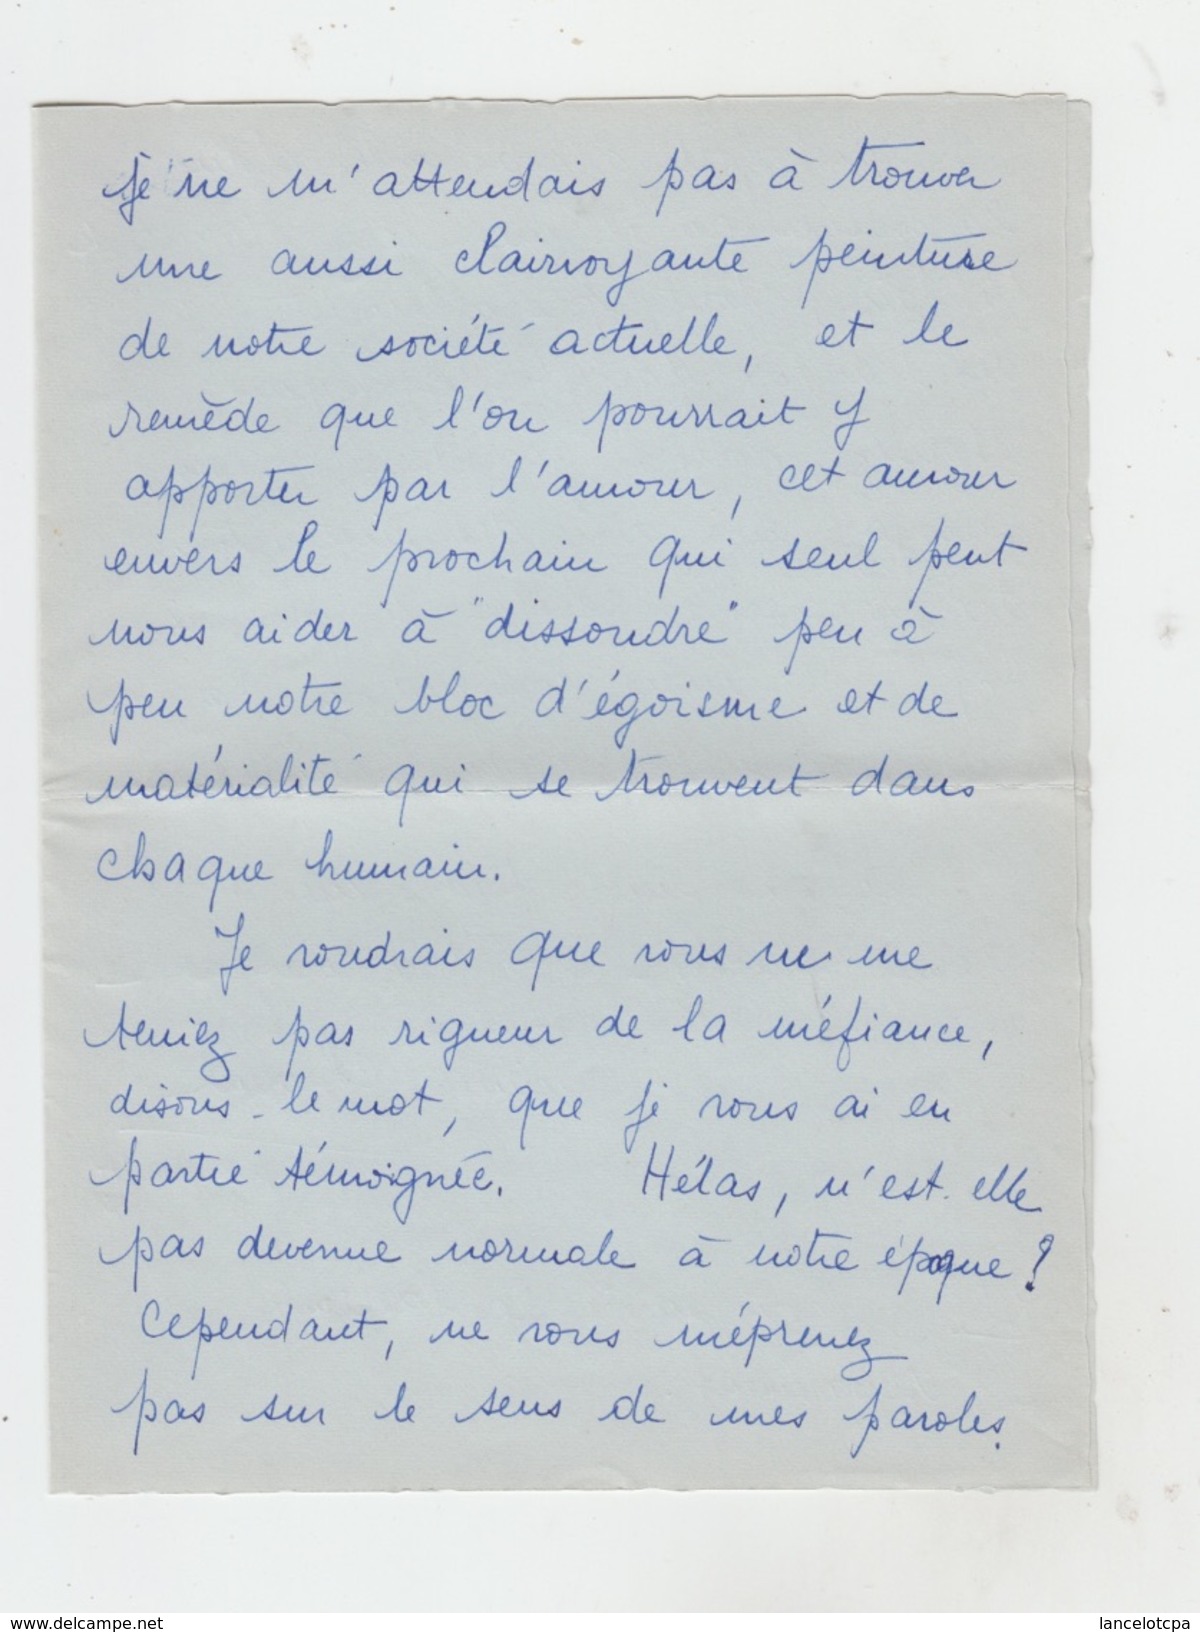 je ne m'attendais pas à trouver
une aussi clairvoyante peinture
de notre société actuelle, et le
remède que l'on pourrait y
apporter par l'amour, cet amour
envers le prochain qui seul peut
nous aider à "dissoudre" peu à
peu notre bloc d'égoïsme et de
matérialité qui se trouvent dans
chaque humain.
Je voudrais que vous ne me
teniez pas rigueur de la méfiance,
disons-le mot, que je vous ai en
partie témoignée. Hélas, n'est-elle
pas devenue normale à notre époque ?
Cependant, ne vous méprenez
pas sur le sens de mes paroles.
www.delcampe.net
lancelotcpa